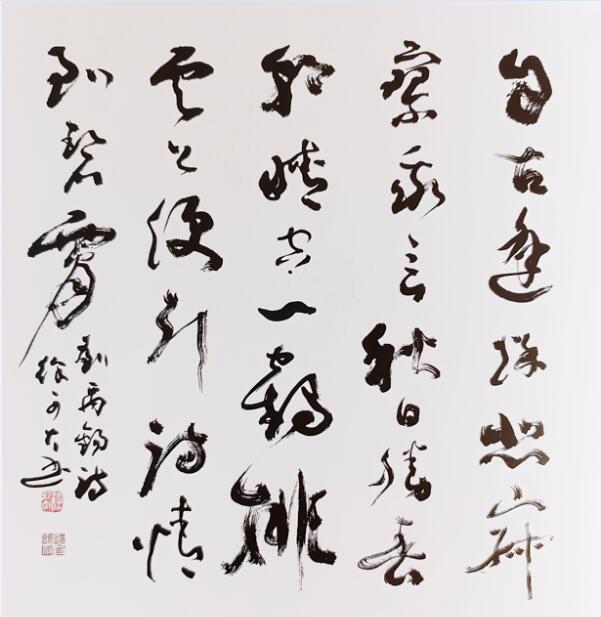 自古逢秋悲寂
寥我言秋日勝春
朝晴空一鶴排
雲上便引詩情
到碧霄
劉禹錫詩
徐可大書